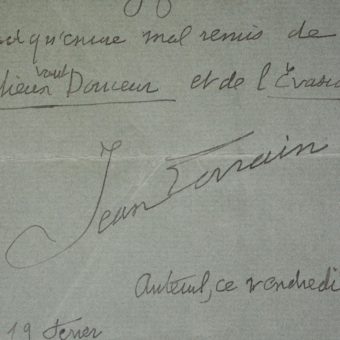 qu'encore mal remis de
vaut
Douceur et de l'Evasi
Jean Lorrain
Auteuil, ce vendredi
19 fevrier